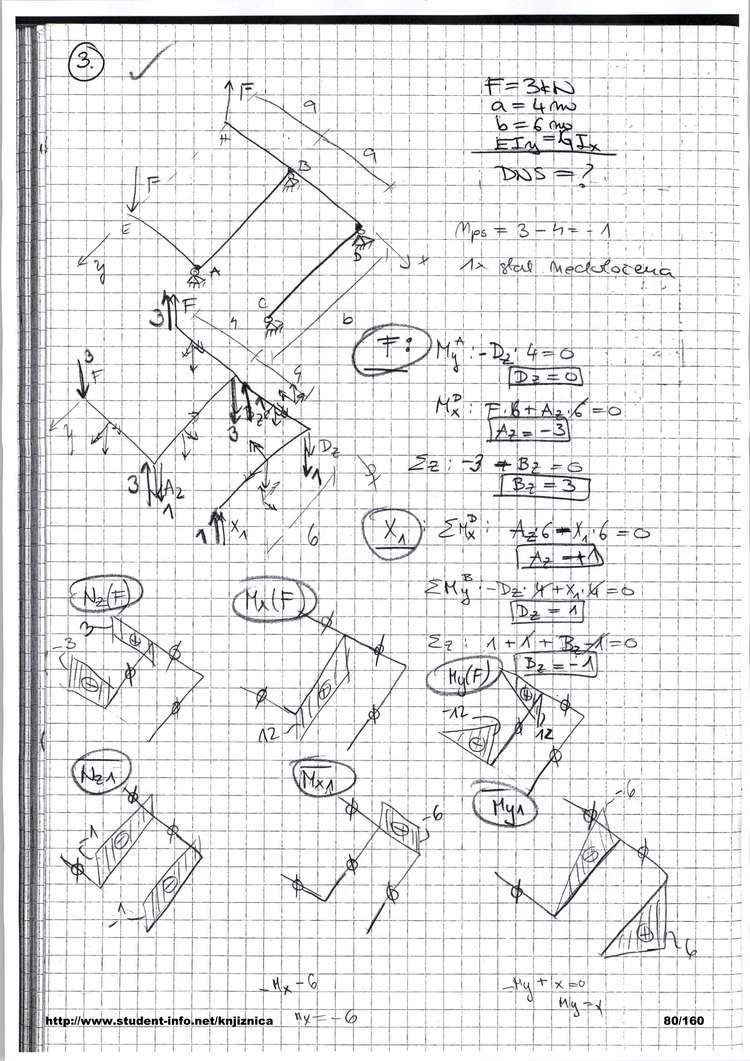 3.
F = 3kN
a = 4 m
b = 6 m
EIy = GIx
DNS = ?
F
a
a
H
B
F
E
y
A
D
x
C
b
nps = 3 - 4 = -1
1x stat nedoločena
3 F
4
4
3
F
y
3
Az
1
3
Bz
Dz
1
1 X1
6
F:
MyA: -Dz · 4 = 0
Dz = 0
MxD: F·6 + Az·6 = 0
Az = -3
Σz: -3 + Bz = 0
Bz = 3
X1: ΣMxD: Az·6 - X1·6 = 0
Az = +1
ΣMyB: -Dz·4 + X1·4 = 0
Dz = 1
Σz: 1 + 1 + Bz - 1 = 0
Bz = -1
Nz(F)
3
-3
Mx(F)
12
My(F)
-12
12
Nz1
-1
-1
Mx1
-6
My1
-6
6
-Mx - 6
Mx = -6
-My + x = 0
My = x
http://www.student-info.net/knjiznica
80/160